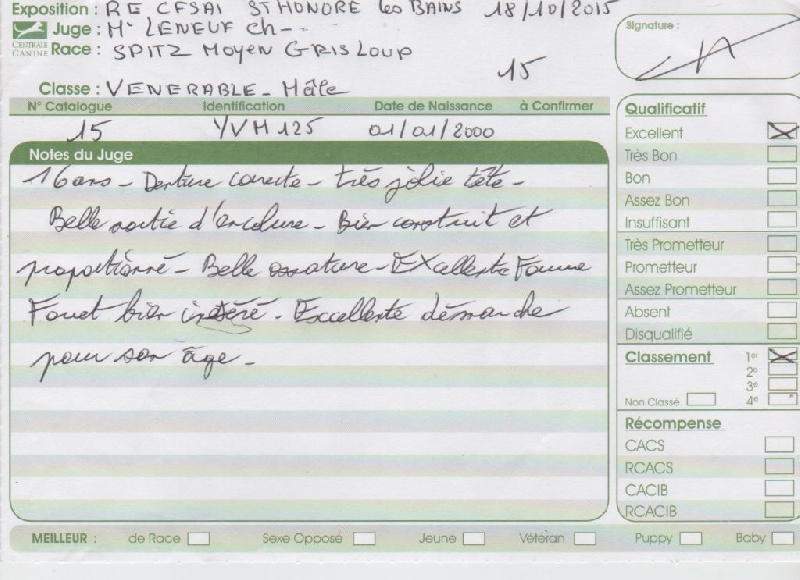 Exposition : RE CFSAI ST HONORE les BAINS 18/10/2015
Signature :
CENTRALE CANINE
Juge : Mr LENEUF Ch--
Race : SPITZ Moyen GRIS LOUP
15
Classe : VENERABLE - Mâle
N° Catalogue Identification Date de Naissance à Confirmer
15 YVH 125 01/01/2000
Notes du Juge
16 ans - Denture correcte - très jolie tête -
Belle sortie d'encolure - Bien construit et
proportionné - Belle ossature - Excellente Fourrure
Fouet bien inséré - Excellente démarche
pour son âge -
Qualificatif
Excellent
Très Bon
Bon
Assez Bon
Insuffisant
Très Prometteur
Prometteur
Assez Prometteur
Absent
Disqualifié
Classement 1er
2e
3e
Non Classé 4e
Récompense
CACS
RCACS
CACIB
RCACIB
MEILLEUR : de Race Sexe Opposé Jeune Vétéran Puppy Baby